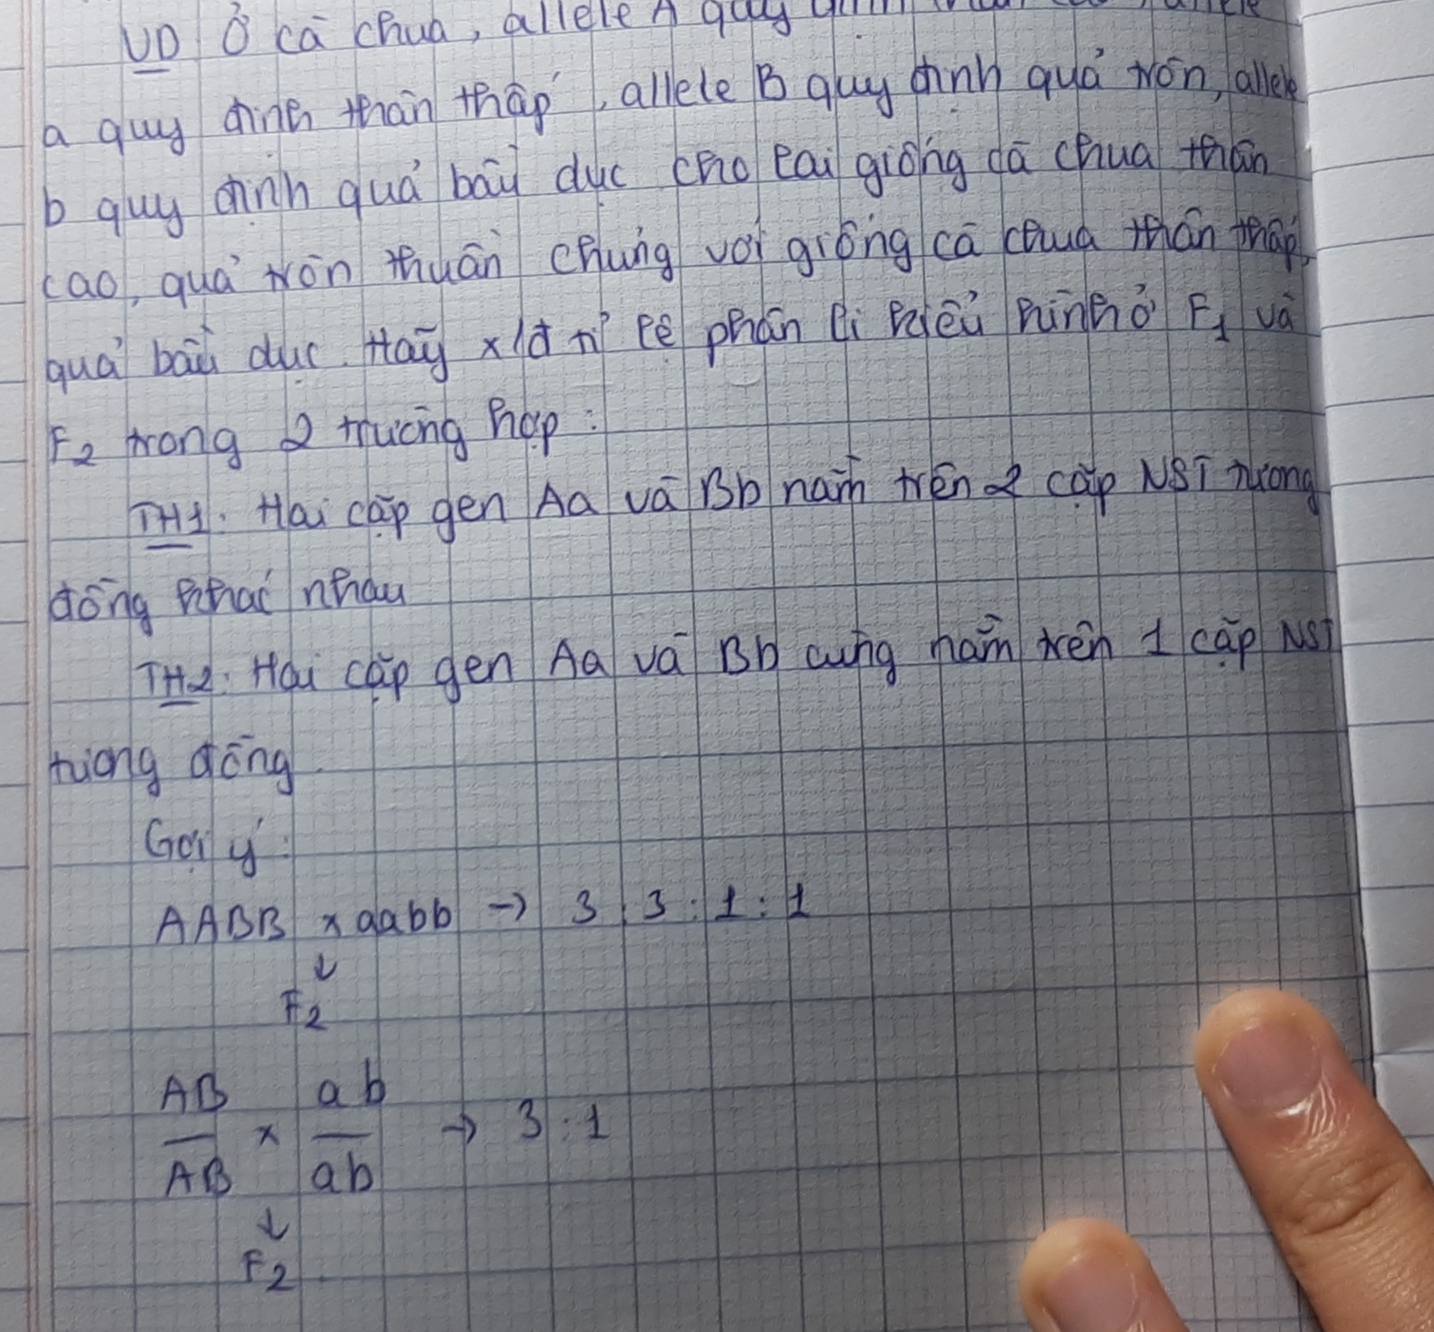 VD Ở cà chua, allele A quy định
a quy định thân thấp, allele B quy định quả tròn, allele
b quy định quả bầu dục cho lai giống cà chua thân
cao, quả tròn thuần chủng với giống cà chua thân thấp,
quả bầu dục. Hãy x/đ tỉ lệ phân li kiểu hình ở F1 và
F2 trong 2 trường hợp:
TH1. Hai cặp gen Aa và Bb nằm trên 2 cặp NST tương
đồng khác nhau
TH2. Hai cặp gen Aa và Bb cùng nằm trên 1 cặp NST
tương đồng.
Gợi ý:
AABB x aabb -> 3:3:1:1
↓
F2
AB ab
— x — -> 3:1
AB ab
↓
F2